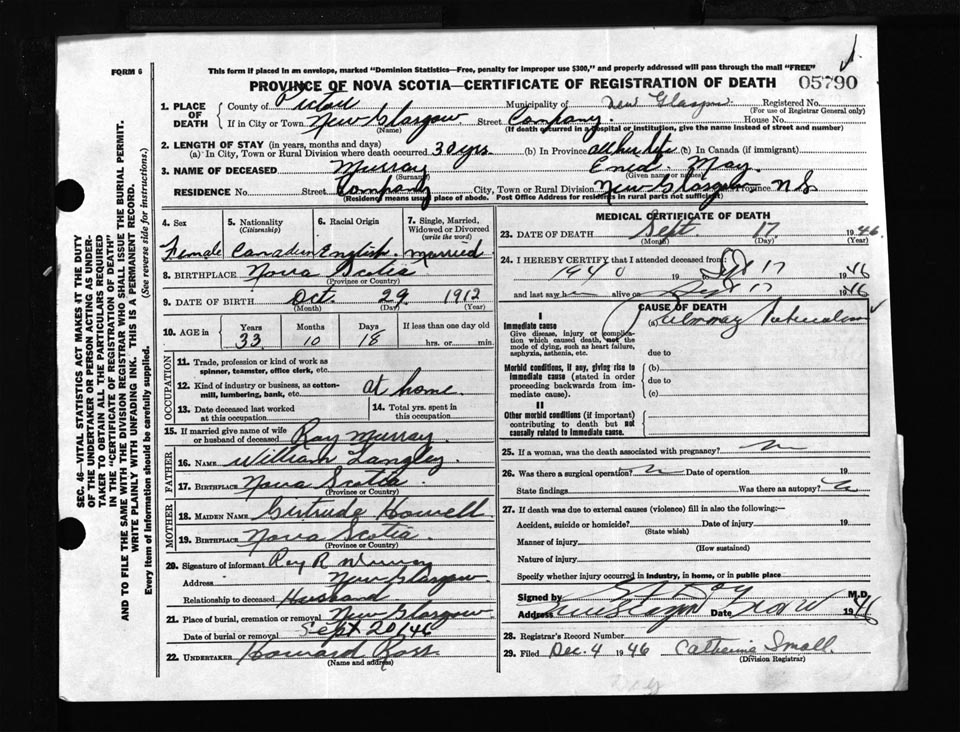 FORM 6
This form if placed in an envelope, marked "Dominion Statistics—Free, penalty for improper use $300," and properly addressed will pass through the mail "FREE"
PROVINCE OF NOVA SCOTIA—CERTIFICATE OF REGISTRATION OF DEATH
05790
1. PLACE OF DEATH
County of Pictou Municipality of New Glasgow Registered No.
(For use of Registrar General only)
If in City or Town New Glasgow Street Company. House No.
(Name) (If death occurred in a hospital or institution, give the name instead of street and number)
2. LENGTH OF STAY (in years, months and days)
(a) In City, Town or Rural Division where death occurred 30 yrs. (b) In Province all her life (c) In Canada (if immigrant)
3. NAME OF DECEASED Murray Enid May.
(Surname) (Given name or names)
RESIDENCE No. Street Company City, Town or Rural Division New Glasgow Province N S
(Residence means usual place of abode. Post Office Address for residents in rural parts not sufficient)
4. Sex
Female
5. Nationality
(Citizenship)
Canadian
6. Racial Origin
English
7. Single, Married, Widowed or Divorced
(write the word)
married
8. BIRTHPLACE Nova Scotia
(Province or Country)
9. DATE OF BIRTH Oct. 29 1912
(Month) (Day) (Year)
10. AGE in Years Months Days If less than one day old
33 10 18 hrs. or min.
OCCUPATION
11. Trade, profession or kind of work as
spinner, teamster, office clerk, etc.
12. Kind of industry or business, as cotton-
mill, lumbering, bank, etc. at home.
13. Date deceased last worked
at this occupation
14. Total yrs. spent in
this occupation
15. If married give name of wife
or husband of deceased Ray Murray.
FATHER
16. NAME William Langley
17. BIRTHPLACE Nova Scotia.
(Province or Country)
MOTHER
18. MAIDEN NAME Gertrude Howell
19. BIRTHPLACE Nova Scotia.
(Province or Country)
20. Signature of informant Roy R Murray
Address New Glasgow
Relationship to deceased Husband
21. Place of burial, cremation or removal New Glasgow
Date of burial or removal Sept 20/46
22. UNDERTAKER Howard Ross.
(Name and address)
MEDICAL CERTIFICATE OF DEATH
23. DATE OF DEATH Sept. 17 1946
(Month) (Day) (Year)
24. I HEREBY CERTIFY that I attended deceased from:
1940 19 to Sept 17 1946
and last saw h alive on Sept 17 1946
CAUSE OF DEATH
I
Immediate cause
Give disease, injury or complica-
tion which caused death, not the
mode of dying, such as heart failure,
asphyxia, asthenia, etc.
(a) Pulmonary Tuberculosis
due to
Morbid conditions, if any, giving rise to
immediate cause (stated in order
proceeding backwards from im-
mediate cause).
(b)
due to
(c)
II
Other morbid conditions (if important)
contributing to death but not
causally related to immediate cause.
25. If a woman, was the death associated with pregnancy? no
26. Was there a surgical operation? no Date of operation 19
State findings Was there an autopsy? no
27. If death was due to external causes (violence) fill in also the following:—
Accident, suicide or homicide? Date of injury 19
(State which)
Manner of injury
(How sustained)
Nature of injury
Specify whether injury occurred in industry, in home, or in public place
Signed by M.D.
Address New Glasgow Date 1946
28. Registrar's Record Number
29. Filed Dec. 4 1946 Catherine Small.
(Division Registrar)
SEC. 46—VITAL STATISTICS ACT MAKES IT THE DUTY
OF THE UNDERTAKER OR PERSON ACTING AS UNDER-
TAKER TO OBTAIN ALL THE PARTICULARS REQUIRED
IN THE "CERTIFICATE OF REGISTRATION OF DEATH"
AND TO FILE THE SAME WITH THE DIVISION REGISTRAR WHO SHALL ISSUE THE BURIAL PERMIT.
WRITE PLAINLY WITH UNFADING INK. THIS IS A PERMANENT RECORD.
Every item of information should be carefully supplied. (See reverse side for instructions.)